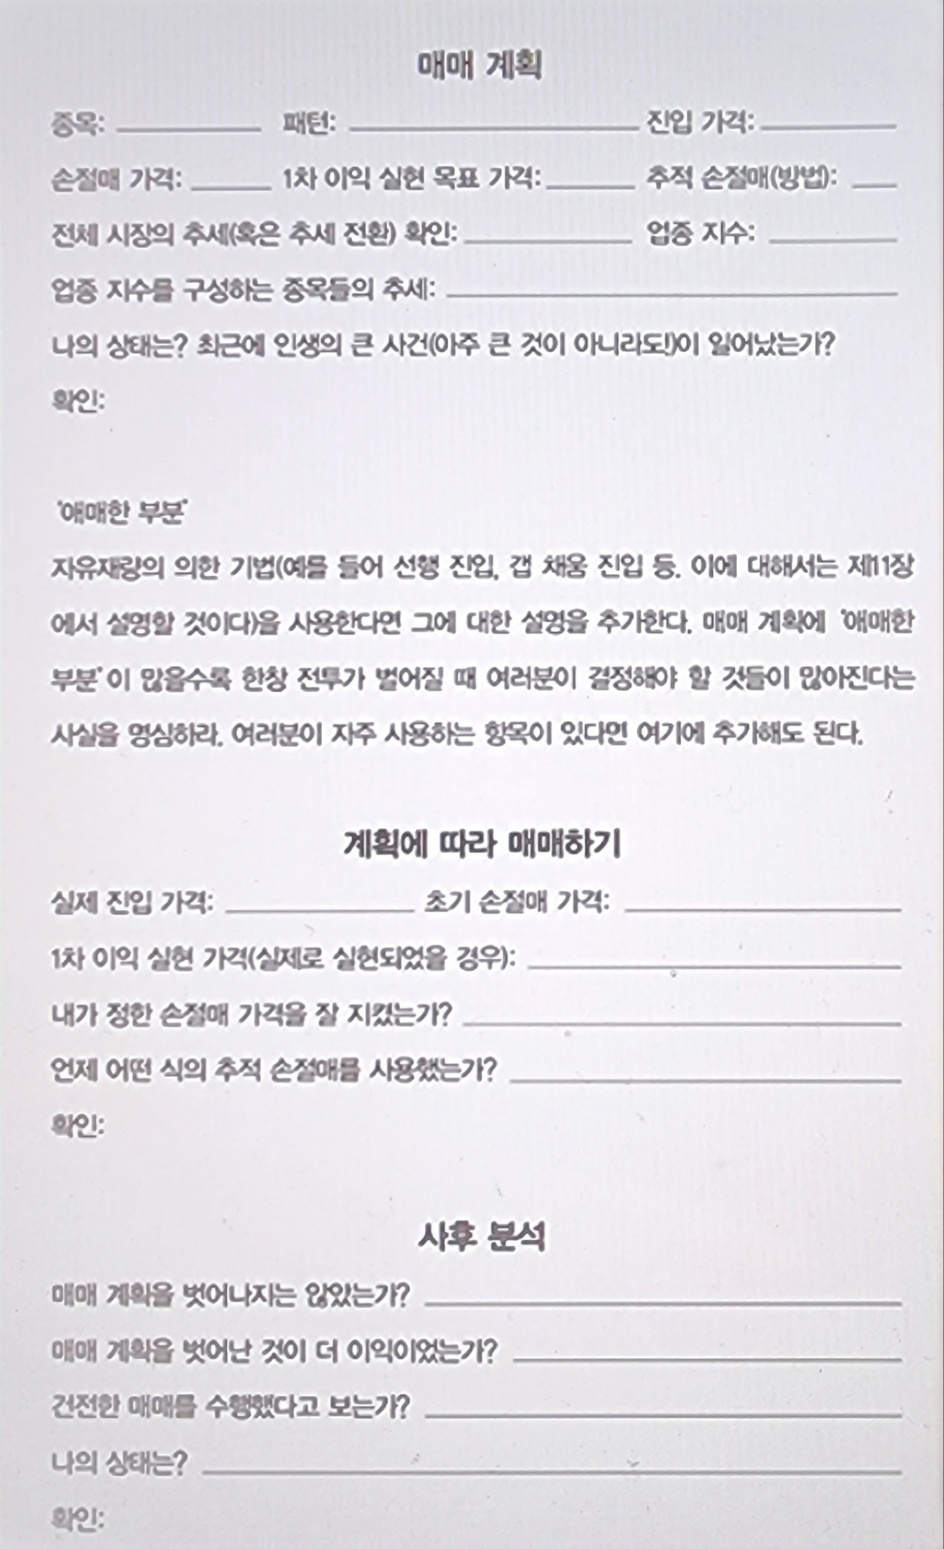 매매 계획
종목: 패턴: 진입 가격:
손절매 가격: 1차 이익 실현 목표 가격: 추적 손절매(방법):
전체 시장의 추세(혹은 추세 전환) 확인: 업종 지수:
업종 지수를 구성하는 종목들의 추세:
나의 상태는? 최근에 인생의 큰 사건(아주 큰 것이 아니라도!)이 일어났는가?
확인:
'애매한 부분'
자유재량의 의한 기법(예를 들어 선행 진입, 갭 채움 진입 등. 이에 대해서는 제11장
에서 설명할 것이다)을 사용한다면 그에 대한 설명을 추가한다. 매매 계획에 '애매한
부분'이 많을수록 한창 전투가 벌어질 때 여러분이 결정해야 할 것들이 많아진다는
사실을 명심하라. 여러분이 자주 사용하는 항목이 있다면 여기에 추가해도 된다.
계획에 따라 매매하기
실제 진입 가격: 초기 손절매 가격:
1차 이익 실현 가격(실제로 실현되었을 경우):
내가 정한 손절매 가격을 잘 지켰는가?
언제 어떤 식의 추적 손절매를 사용했는가?
확인:
사후 분석
매매 계획을 벗어나지는 않았는가?
매매 계획을 벗어난 것이 더 이익이었는가?
건전한 매매를 수행했다고 보는가?
나의 상태는?
확인: